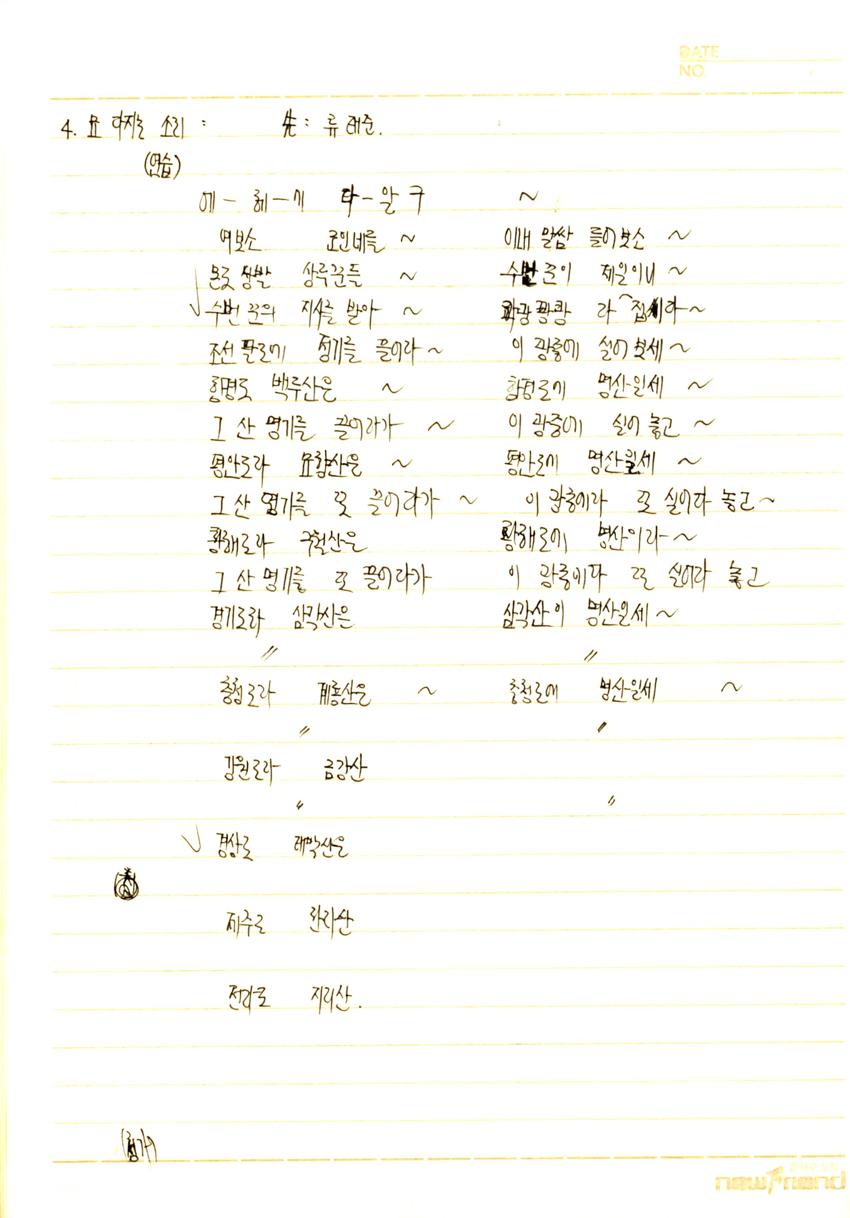 DATE
NO.
4. 묘 다지는 소리 : 先 : 류 래준.
(연습)
에 - 헤 - 이 다 - 알 구 ~
여보소 군인네들 ~ 이내 말쌈 들어보소 ~
상루꾼들 ~ 수번 군이 제일이니 ~
수번 군의 지시를 받아 ~ 쾅쾅 다 집이라 ~
조선 팔도에 정기를 끌어라 ~ 이 광중에 실어 보세 ~
함평도 백두산은 ~ 함평도에 명산일세 ~
그 산 명기를 끌어라가 ~ 이 광중에 실어 놓고 ~
평안도라 묘향산은 ~ 평안도에 명산일세 ~
그 산 명기를 또 끌어다가 ~ 이 광중에라 또 실어다 놓고 ~
황해도라 구월산은 황해도에 명산이라 ~
그 산 명기를 또 끌어다가 이 광중이다 또 실어라 놓고
경기도라 삼각산은 삼각산이 명산일세 ~
〃 〃
충청도라 계룡산은 ~ 충청도에 명산일세 ~
〃 〃
강원도라 금강산
〃 〃
경상도 태백산은
제주도 한라산
전라도 지리산.
newFriend